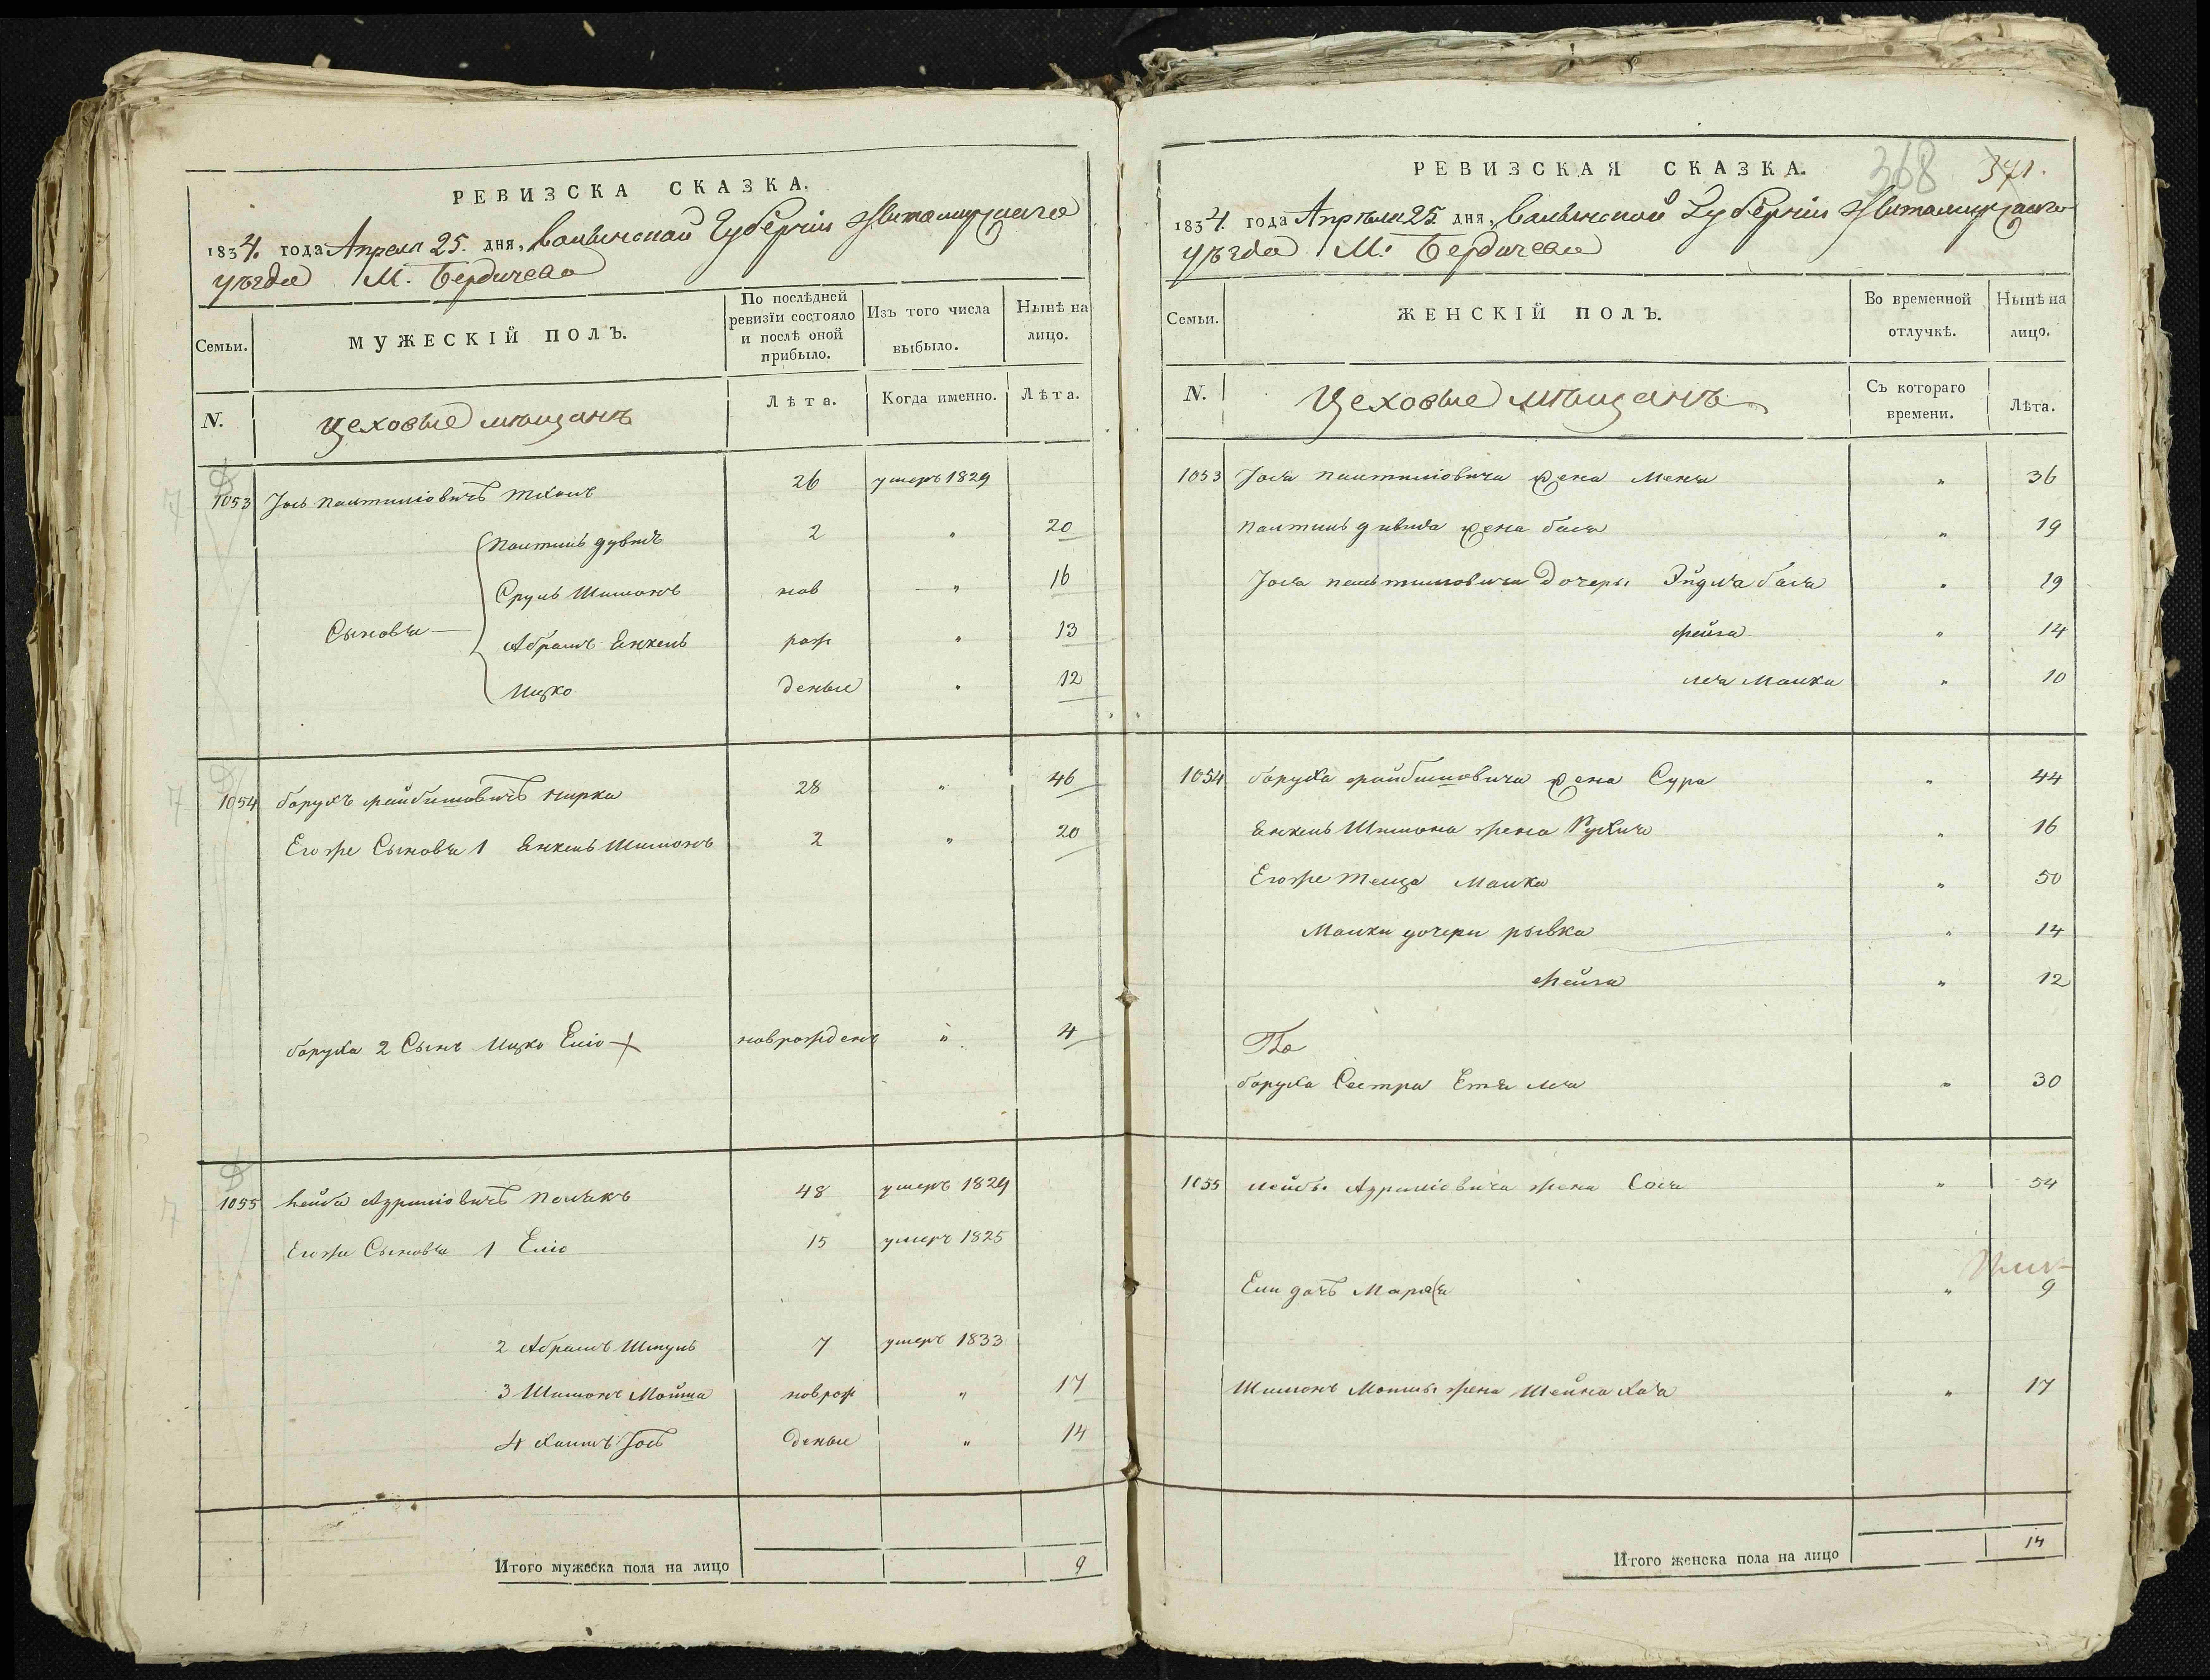 РЕВИЗСКА СКАЗКА.
1834. года Апреля 25. дня, Волынской Губерніи Житомирскаго
уѣзда М. Бердичева
Семьи. МУЖЕСКІЙ ПОЛЪ. По послѣдней ревизіи состояло и послѣ оной прибыло. Изъ того числа выбыло. Нынѣ на лицо.
N. Цеховые мѣщанъ Лѣта. Когда именно. Лѣта.
1053 Іось Пантиліовичъ 26 умеръ 1829
2 " 20
Сруль Шимонъ нов " 16
Сыновья Абрамъ Янкель рож " 13
Ицко деные " 12
1054 Борухъ Файбишовичъ 28 " 46
Его же Сыновья 1 Янкель Шимонъ 2 " 20
Боруха 2 Сынъ Ицко Еліо новрожденъ " 4
1055 Лейба Азриліовичъ Полякъ 48 умеръ 1829
Его же Сыновья 1 Еліо 15 умеръ 1825
2 Абрамъ Шмуль 7 умеръ 1833
3 Шимонъ Мошка новрож " 17
4 Хаимъ Іось деные " 14
Итого мужеска пола на лицо 9
РЕВИЗСКАЯ СКАЗКА. 368 371.
1834. года Апрѣля 25 дня, Волынской Губерніи Житомирскаго
уѣзда М. Бердичева
Семьи. ЖЕНСКІЙ ПОЛЪ. Во временной отлучкѣ. Нынѣ на лицо.
N. Цеховые мѣщанъ Съ котораго времени. Лѣта.
1053 Іося жена Меня " 36
жена Бася " 19
Іося дочеры Эйдля Бася " 19
Фейга " 14
Лея Малка " 10
1054 Боруха Файбишовича жена Сура " 44
Янкель Шимона жена Рухля " 16
Его же теща Малка " 50
Малки дочери Рывка " 14
Фейга " 12
Боруха Сестра Етя Лея " 30
1055 Лейбы Азриліовича жена Сося " 54
Ели дочь " 9
Шимонъ Мошкы жена Шейна Хая " 17
Итого женска пола на лицо 14